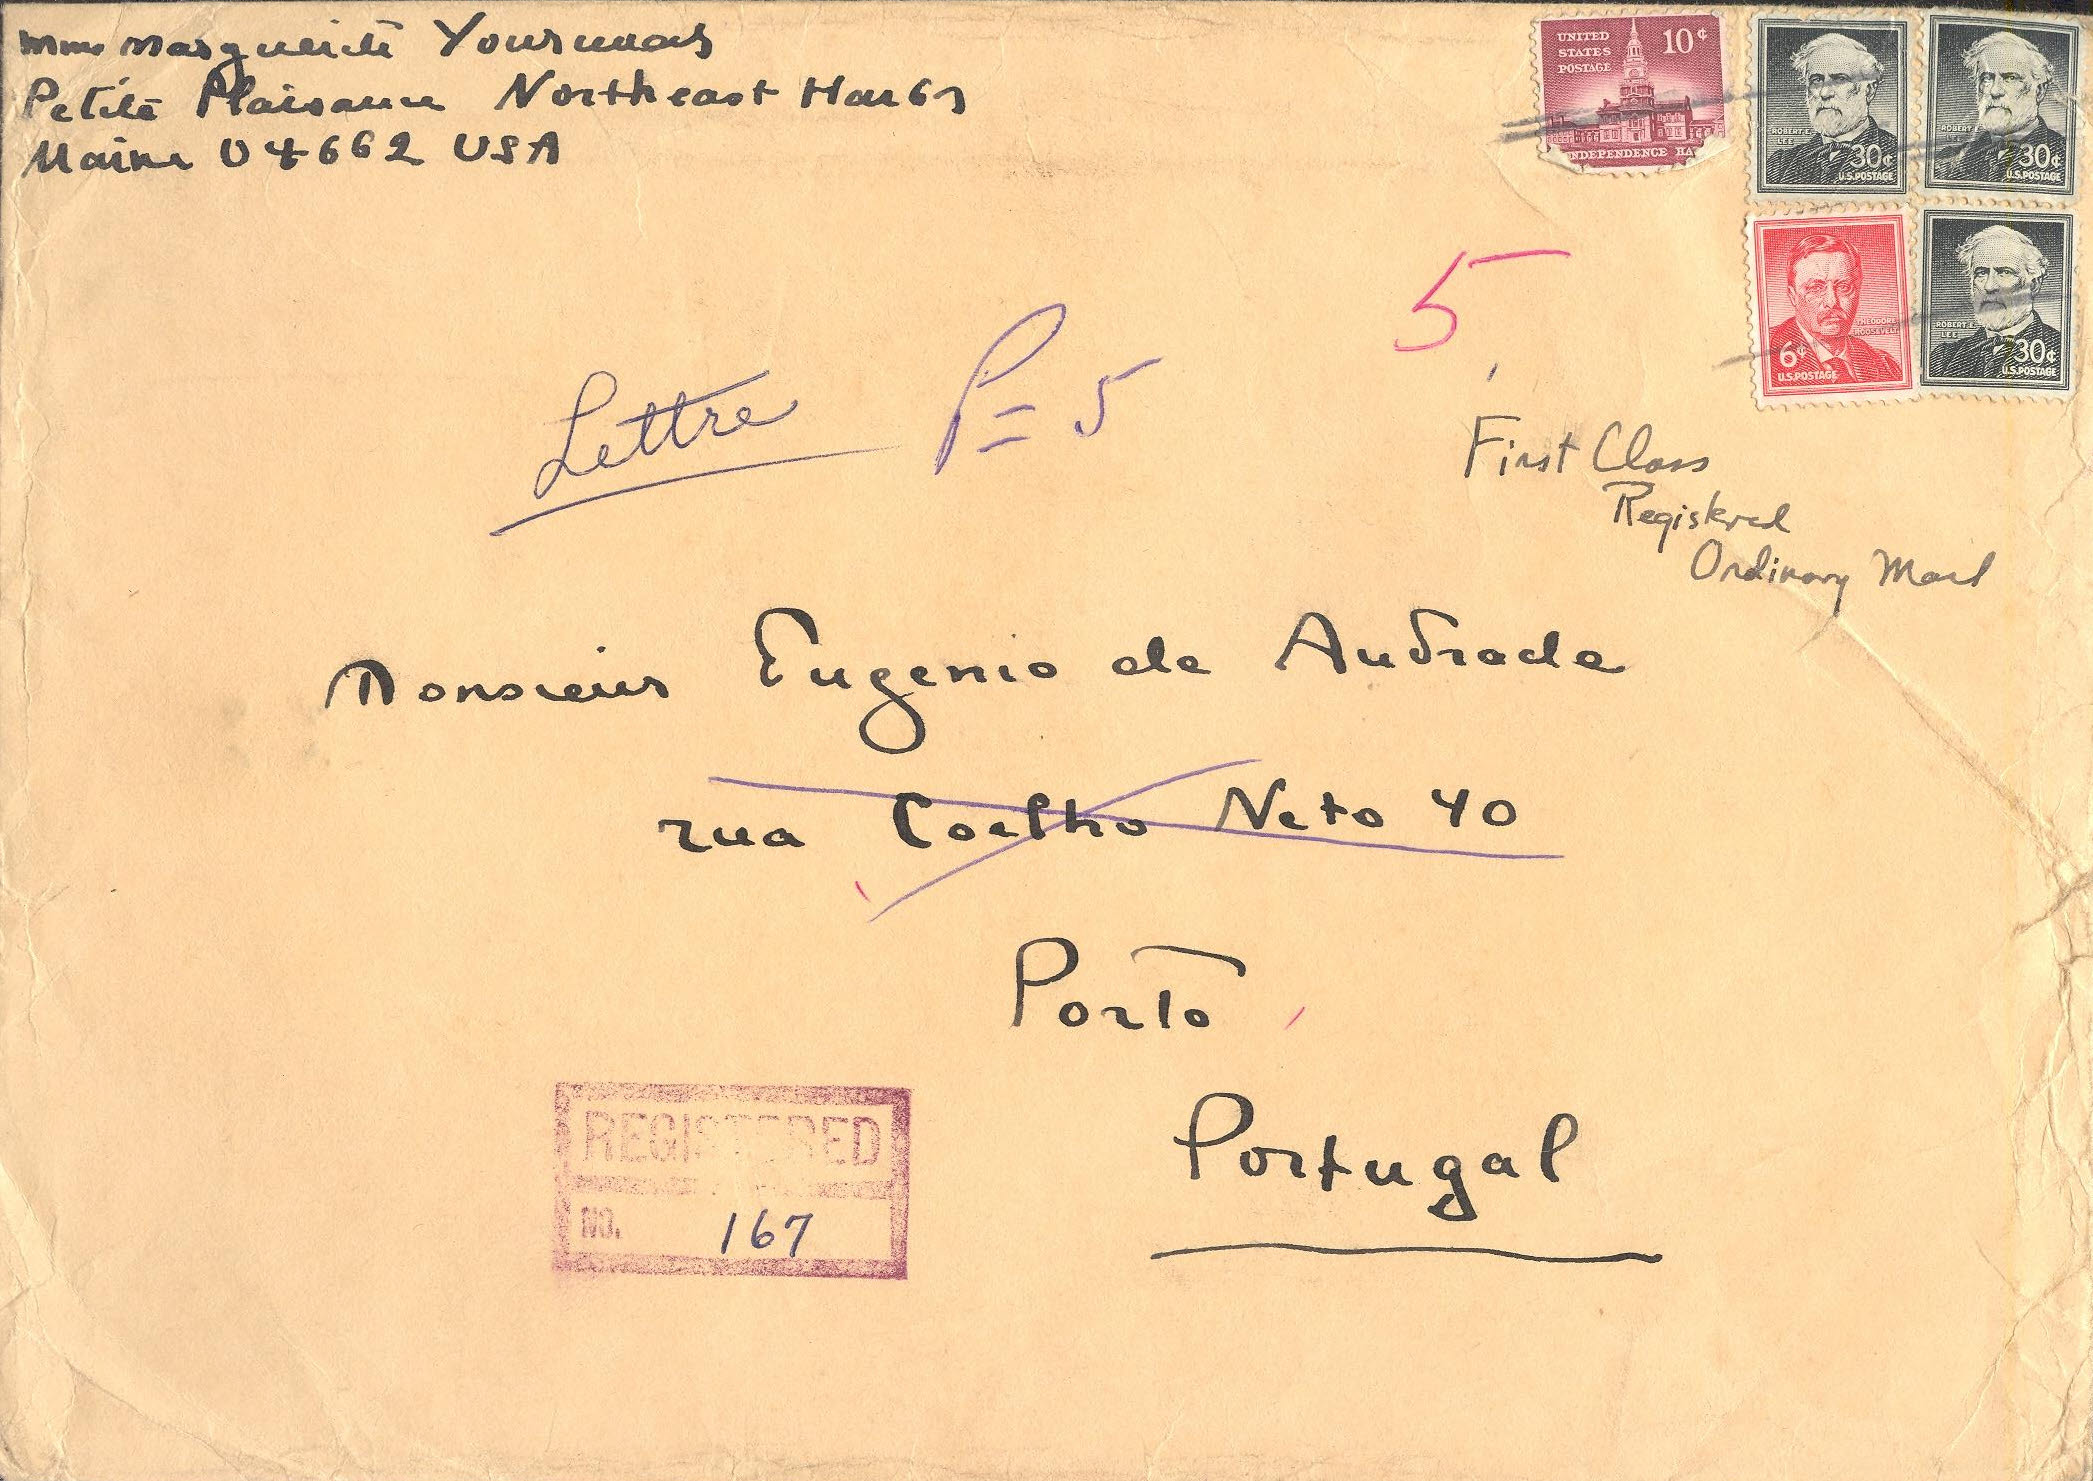 Mme Marguerite Yourcenar
Petite Plaisance Northeast Harbor
Maine 04662 USA
UNITED
STATES
POSTAGE
10¢
INDEPENDENCE HA
ROBERT E.
LEE
30¢
U.S.POSTAGE
ROBERT E.
LEE
30¢
U.S.POSTAGE
THEODORE
ROOSEVELT
6¢
U.S.POSTAGE
ROBERT E.
LEE
30¢
U.S.POSTAGE
5
Lettre P=5
First Class
Registered
Ordinary Mail
Monsieur Eugenio de Andrade
rua Coelho Neto 40
Porto
Portugal
REGISTERED
NO. 167